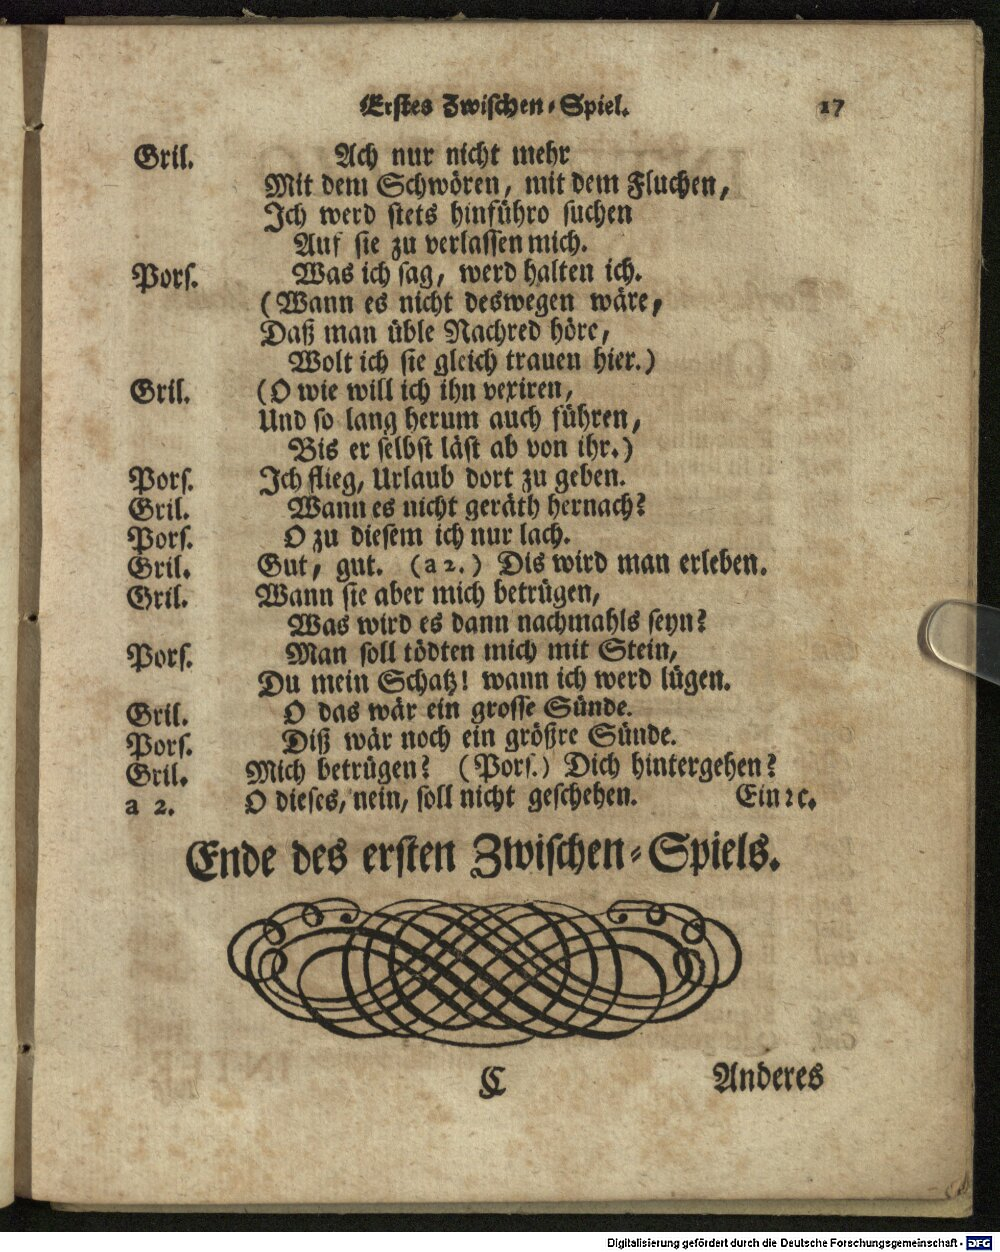 Erstes Zwischen-Spiel. 17
Gril. Ach nur nicht mehr
Mit dem Schwören, mit dem Fluchen,
Ich werd stets hinführo suchen
Auf sie zu verlassen mich.
Pors. Was ich sag, werd halten ich.
(Wann es nicht deswegen wäre,
Daß man üble Nachred höre,
Wolt ich sie gleich trauen hier.)
Gril. (O wie will ich ihn vexiren,
Und so lang herum auch führen,
Bis er selbst läst ab von ihr.)
Pors. Ich flieg, Urlaub dort zu geben.
Gril. Wann es nicht geräth hernach?
Pors. O zu diesem ich nur lach.
Gril. Gut, gut. (a 2.) Dis wird man erleben.
Gril. Wann sie aber mich betrügen,
Was wird es dann nachmahls seyn?
Pors. Man soll tödten mich mit Stein,
Du mein Schatz! wann ich werd lügen.
Gril. O das wär ein grosse Sünde.
Pors. Diß wär noch ein größre Sünde.
Gril. Mich betrügen? (Pors.) Dich hintergehen?
a 2. O dieses, nein, soll nicht geschehen. Ein ꝛc.
Ende des ersten Zwischen-Spiels.
C Anderes
Digitalisierung gefördert durch die Deutsche Forschungsgemeinschaft - DFG